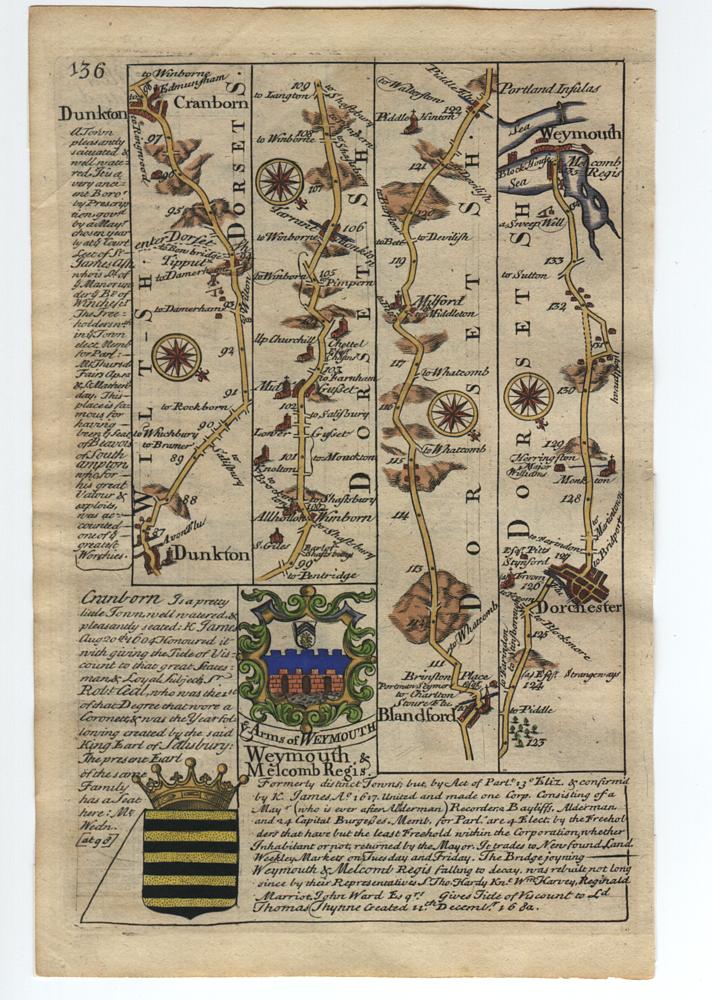 136
Dunkton
A Town
pleasantly
scituated &
well wate-
red. It is a
very anci-
ent Boro'
by Prescrip
tion, gov.d
by a May.r
chosen year
ly at y.e Court
Leet of S.r
James Ash
who is L.d of
y.e Manor un
der y.e B.p of
Winchest.r
The Free-
holders in
y.e Town
elect 2 Memb.
for Parl:
M.t Thursd.
Fairs Apr.
& S.t Mathew
day. This
place is fa
mous for
having
been y.e Seat
of Beavois
of South
ampton
who for
his great
Valour &
exploits,
was ac-
counted
one of y.e
greatest
Worthies.
to Winborne
Edmunsham
Cranborn
to Ringwood
97
96
95
enter Dorset
Bowbridge
Tipput
to Damerham
to Wilton
93
to Damerham
92
91
to Rockborn
90
to Whichbury
to Bramer
89
to Salisbury
88
87
Avon Flu
Dunkton
WILT-SH.
DORSETS.
109
to Langton
to Shaftsbury
108
to Winborne
107
Tarrent
106
to Winborne
105
to Winborn
Pimpern
Up Churchill
Chettel
103
to Farnham
Mid
Gusset
102
to Salisbury
Lower
Gusset
101
to Monckton
Knolton
to Shaftsbury
100
Allhollon
Winborn
to Shaftsbury
S. Giles
Earl of
Shaftsbury
99
to Pentridge
DORSET SH
Piddle Flu
to Walterston
122
Piddle Hinton
121
to Devilish
120
to Devilish
119
Milford
to Middleton
117
to Whatcomb
116
to Whatcomb
115
114
113
112
to Whatcomb
111
Brinston Place
Portman Seymor Esq.r
to Charlton
Stoure Flu
Blandford
DORSET SH.
Portland Insulas
Sea
Weymouth
Block House
Melcomb
Regis
Sea
135
134
a Sweep Well
133
to Sutton
132
131
130
129
Herringston
Major
Williams
Monkton
128
to Martinstown
to Bridport
127
Esq.r Pitts
Stynford
Froom
126
Dorchester
125
to Blockmore
Esq.r Strangeways
124
to Piddle
123
DORSET SH
Cranborn Is a pretty
little Town, well watered &
pleasantly seated: K. James
Aug 20.th 1604 Honoured it
with giving the Title of Vis-
count to that great States:
man & Loyal Subject S.r
Rob.t Cecil, who was the 1.st
of that Degree that wore a
Coronet, & was the Year fol-
lowing created by the said
King Earl of Salisbury:
The present Earl
of the same
Family
has a Seat
here: M.t
Wedn.
[at 98]
y.e Arms of WEYMOUTH
Weymouth &
Melcomb Regis
Formerly distinct Towns; but, by Act of Parl.t 13.o Eliz. & confirm'd
by K. James, A.o 1617. United and made one Corp. Consisting of a
May.r (who is ever after Alderman) Recorder 2 Bayliffs, Alderman
and 24 Capital Burgesses. Memb. for Parl.t are 4 Elect. by the Freehol-
ders that have but the least Freehold within the Corporation, whether
Inhabitant or not; returned by the Mayor. It trades to Newfound Land
Weekley Markets on Tuesday and Friday. The Bridge joyning
Weymouth & Melcomb Regis falling to decay, was rebuilt not long
since by their Representatives S.r Tho. Hardy Kn.t W.m Harvey, Reginald
Marriot, John Ward Esq.rs Gives Title of Viscount to L.d
Thomas Thynne Created 11.th Decemb.r 1682.